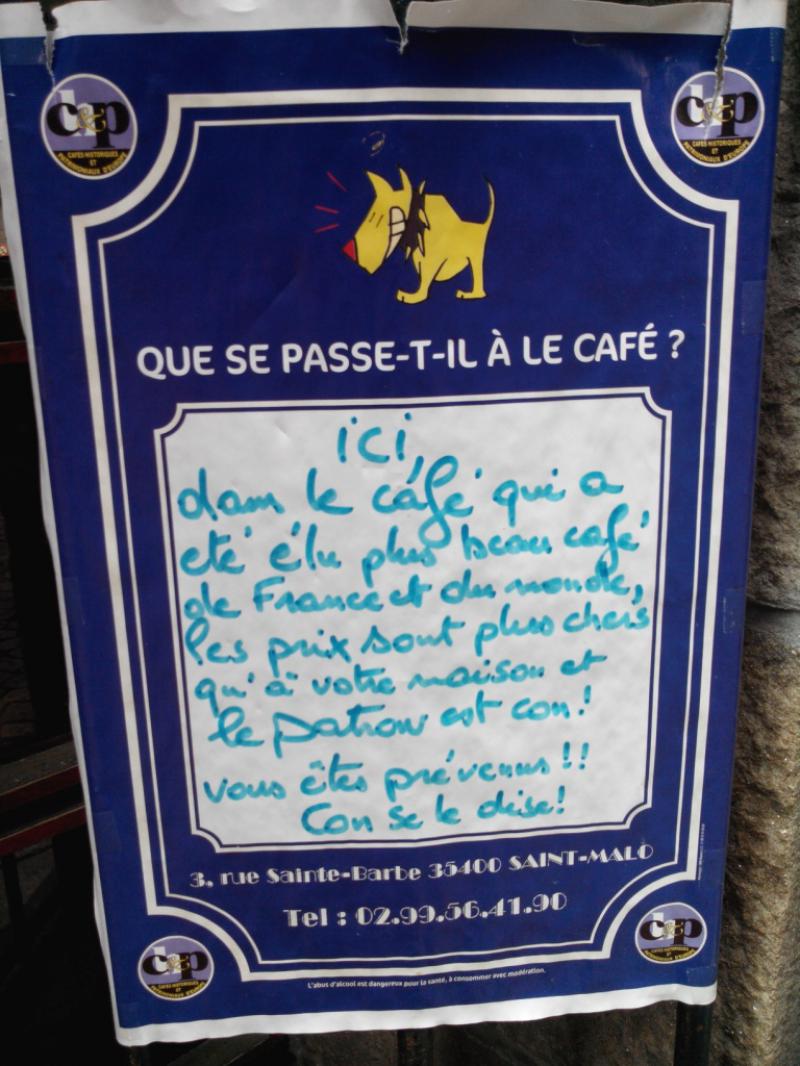 ch&p
CAFES HISTORIQUES
ET
PATRIMONIAUX D'EUROPE
ch&p
CAFES HISTORIQUES
ET
PATRIMONIAUX D'EUROPE
QUE SE PASSE-T-IL À LE CAFÉ ?
ici,
dans le café qui a
été élu plus beau café
de France et du monde,
les prix sont plus chers
qu'à votre maison et
le patron est con !
vous êtes prévenus !!
Con se le dise !
3, rue Sainte-Barbe 35400 SAINT-MALO
Tel : 02.99.56.41.90
ch&p
CAFES HISTORIQUES
ET
PATRIMONIAUX D'EUROPE
ch&p
CAFES HISTORIQUES
ET
PATRIMONIAUX D'EUROPE
L'abus d'alcool est dangereux pour la santé, à consommer avec modération.